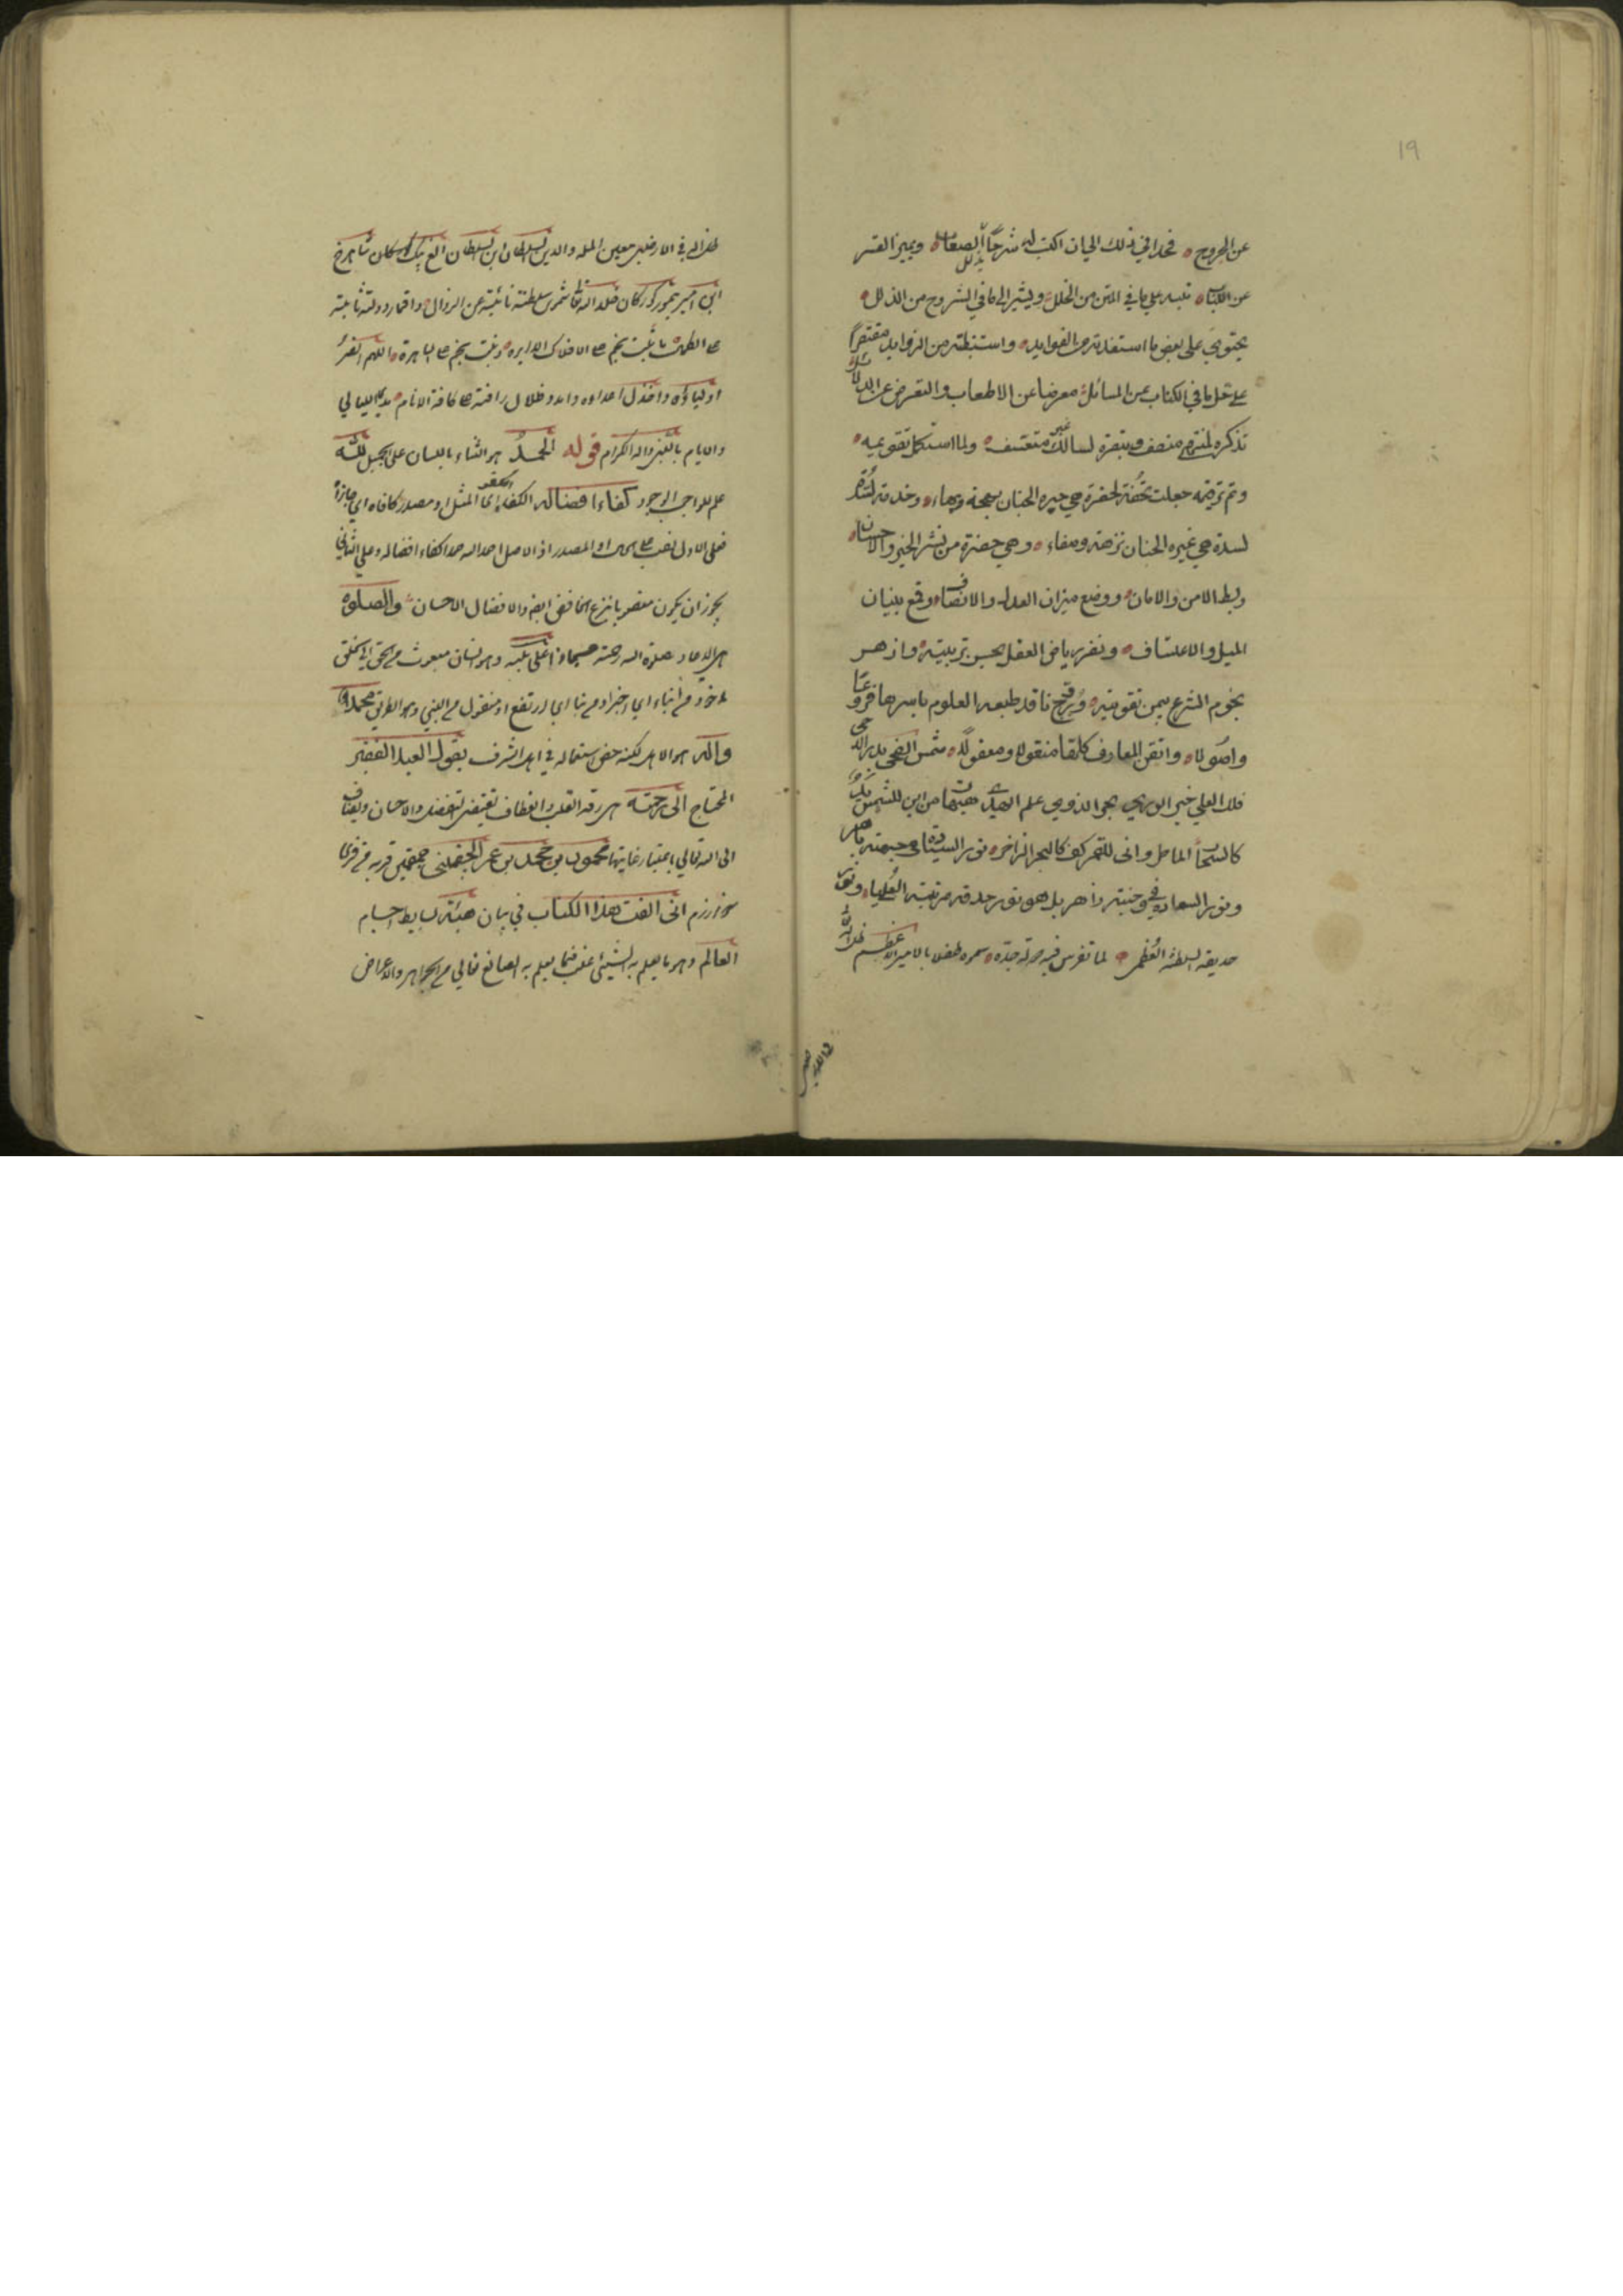 ١٩
عن الجروح فحداني ذلك الى ان اكتب له شرحا يذلل الصعاب ويميز القشر
عن اللباب تنبيه على ما في المتن من الخلل ويشير الى ما في الشروح من الذلل
يحتوي على بعض ما استفدته من الفوايد واستنبطته من الزوايد مقتصرا
على حل ما في الكتاب من المسائل معرضا عن الاطعاب والتعرض عن الدلائل
تذكره لمنتهي منصف وتبصرة لسالك غير متعسف ولما استكمل تقويمه
وتم ترقيمه جعلت تحفة لحضرة هي حيره الجنان بهجة وبهاء وخدمة
لسدة هي غيره الجنان نزهة وصفاء وهي حضرة من نشر الخير والاحسان
وبسط الامن والامان ووضع ميزان العدل والانصاف وقمع بنيان
الميل والاعتساف ونضر رياض العقل بحسن تربيته وازهر
نجوم الشرع بيمن تقويته ناقد طبعه العلوم باسرها فروعا
واصولا واتقن المعارف كلها منقولا ومعقولا شمس الضحى بدر الدجى
فلك العلي خير الوري بحر الندوي علم الهدى هيهات من اين للشمس
كالسحاب الماطر وانى للقمر كف كالبحر الزاخر نور السيادة في جبهته باهر
ونور السعادة في وجنتيه زاهر بل هو نور حدقه مرتبته العلياء ونور
حديقة السلطنة العظمى لما تفرس فيه جده بالامير الاعظم ظل الله
ظل الله في الارضين معين المله والدين السلطان ابن السلطان الغ بيك كوركان شاهرخ
ابن امير تيمور كوركان خلد الله تعالى شموس سلطنته نائية عن الزوال واقمار دولته ثابتة
على الكمال ما ثبت نجم على الافلاك الدايره ونبت نجم على اللهم انصر
اولياؤه واخذل اعداءه وامدد ظلال رافته على كافة الانام مدى الليالي
والايام بالنبي واله الكرام قوله الحمد هو الثناء باللسان على الجميل لله
علم للواجب الوجود كفاء افضاله الكفاء اى المثل او مصدر كافاه اي جازاه
فعلى الاول نصب على المصدر اذ الاصل احمد الله حمدا كفاء افضاله وعلى الثاني
يجوز ان يكون منصوبا بنزع الخافض ايضا والافضال الاحسان والصلوة
هي الدعاء وصلوة الله رحمته على نبيه وهو انسان مبعوث من الحق الى الخلق
ماخوذ من انباء اي اخبر او من نبا اي ارتفع او منقول من النبي وهو الطريق محمد
واله هو الاهل لكنه خص استعماله في اهل الشرف يقول العبد الفقير
المحتاج الى رحمته هي رقة القلب وانعطاف تقتضي التفضل والاحسان ويضاف
الى الله تعالى باعتبار غايتها محمود بن محمد بن عمر الجغميني جغمين قريه من قرى
خوارزم انى الفت هذا الكتاب في بيان هيئة بسايط اجسام
العالم وهو ما يعلم به الشيئ غلب فيما يعلم به الصانع تعالى من الجواهر والاعراض